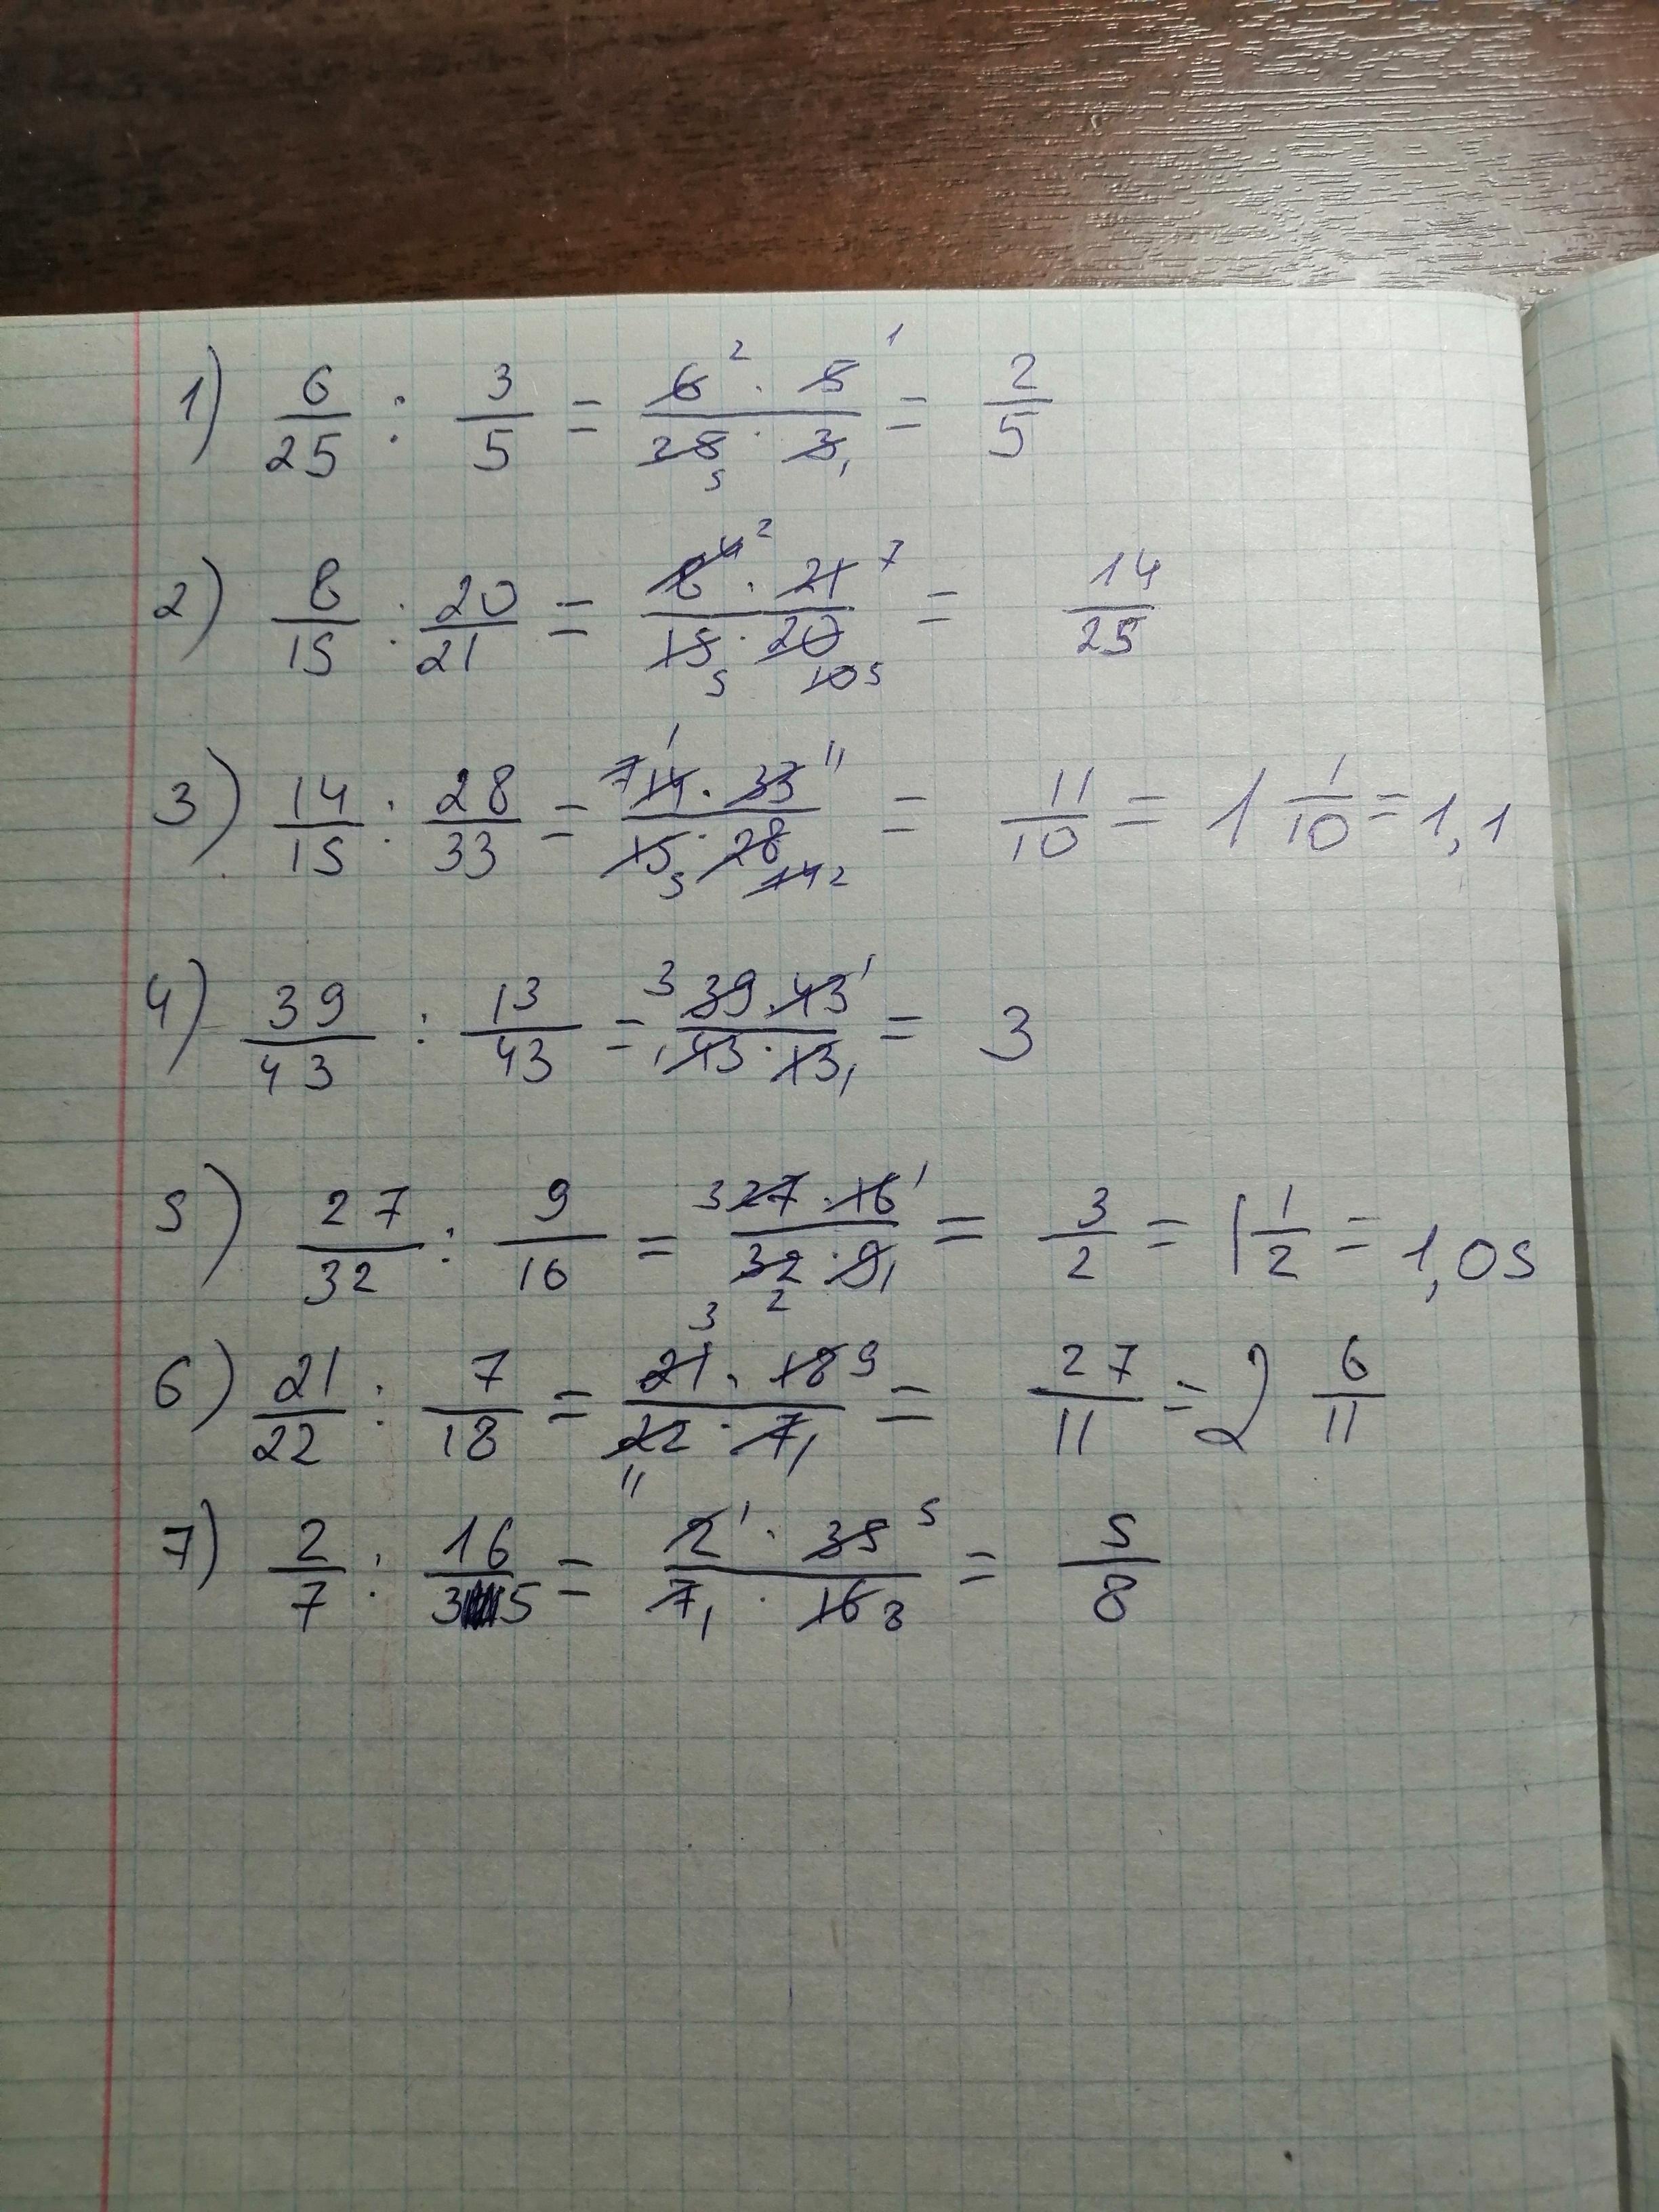 1) 6/25 : 3/5 = 6² · 5¹ / 25₅ · 3₁ = 2/5
2) 8/15 : 20/21 = 8 4 2 · 21 7 / 15 5 · 20 10 5 = 14/25
3) 14/15 : 28/33 = 7 1 14 · 33 11 / 15 5 · 28 14 2 = 11/10 = 1 1/10 = 1,1
4) 39/43 : 13/43 = 3 39 · 43 1 / 1 43 · 13 1 = 3
5) 27/32 : 9/16 = 3 27 · 16 1 / 32 2 · 9 1 = 3/2 = 1 1/2 = 1,05
6) 21/22 : 7/18 = 21 3 · 18 9 / 22 11 · 7 1 = 27/11 = 2 6/11
7) 2/7 : 16/35 = 2 1 · 35 5 / 7 1 · 16 8 = 5/8